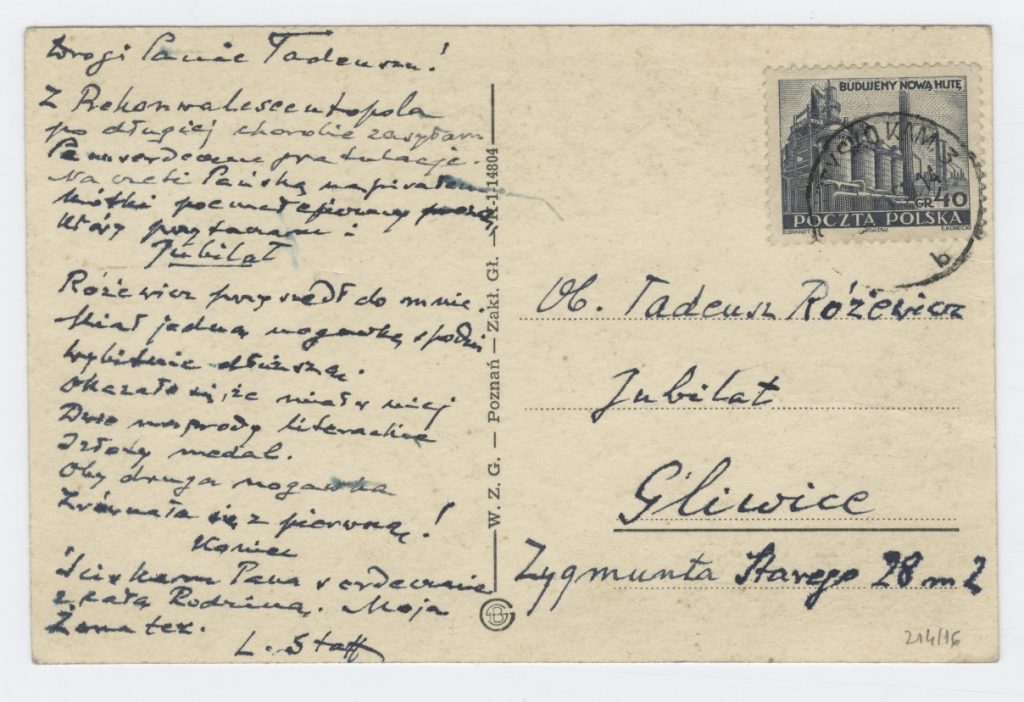 Drogi Panie Tadeuszu!
Z Rekonwalescentopola
po długiej chorobie zasyłam
Panu serdeczne gratulacje.
Na cześć Pańską napisałem
krótki poemat
który przytaczam:
Jubilat
Różewicz przyszedł do mnie
Miał jedną nogawkę spodni
wybitnie dłuższą.
Okazało się, że miał w niej
Dwie nagrody literackie
I złoty medal.
Oby druga nogawka
Zrównała się z pierwszą!
Koniec
Ściskam Pana serdecznie
z całą Rodziną. Moja
Żona też.
L. Staff
W. Z. G. — Poznań — Zakł. Gł. — K-1-14804
BUDUJEMY NOWĄ HUTĘ
GR 40
POCZTA POLSKA
b
Ob. Tadeusz Różewicz
Jubilat
Gliwice
Zygmunta Starego 28 m 2
214/16